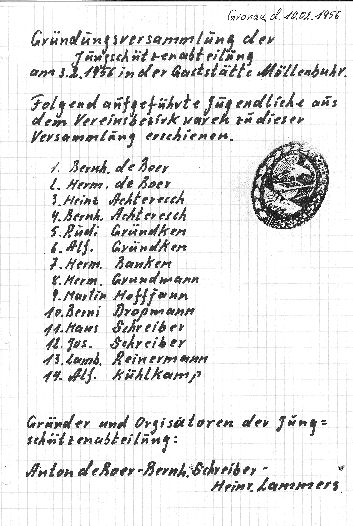 Gronau, d. 10.02.1956
Gründungsversammlung der
Jungschützenabteilung
am 3.2.1956 in der Gaststätte Möllenbuhr.
Folgend aufgeführte Jugendliche aus
dem Vereinsbezirk waren zu dieser
Versammlung erschienen.
1. Bernh. de Boer
2. Herm. de Boer
3. Heinz Achteresch
4. Bernh. Achteresch
5. Rudi Gründken
6. Alf. Gründken
7. Herm. Banken
8. Herm. Grundmann
9. Martin Hoffjann
10. Berni Dropmann
11. Hans Schreiber
12. Jos. Schreiber
13. Lamb. Reinermann
14. Alf. Kühlkamp
Gründer und Orgisatoren der Jung=
schützenabteilung:
Anton de Boer - Bernh. Schreiber -
Heinr. Lammers